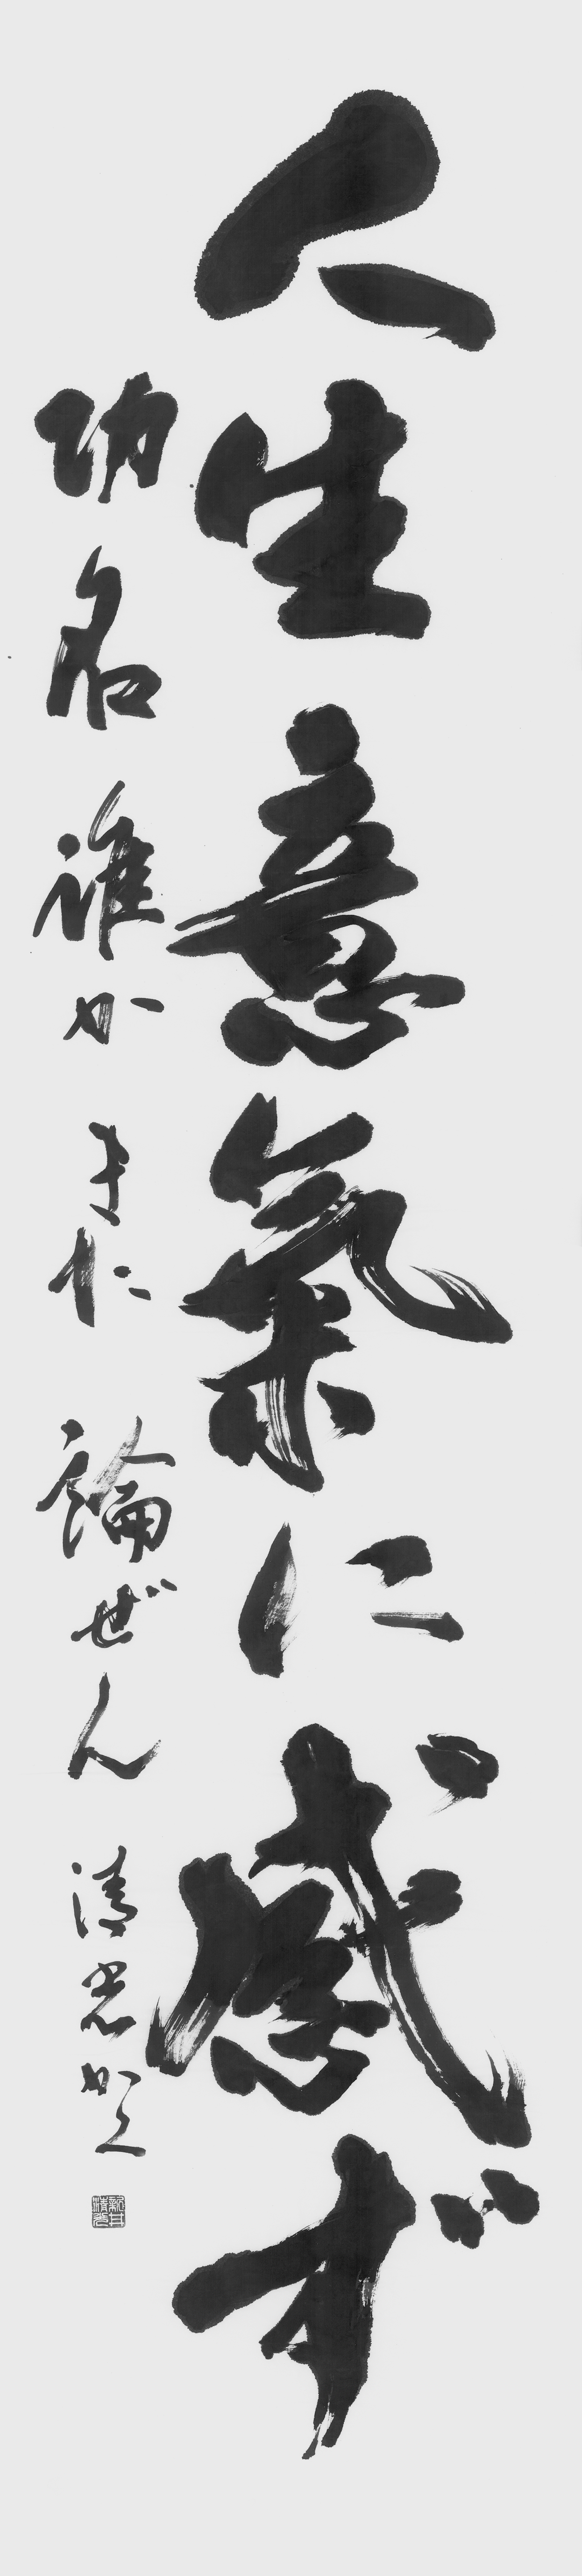 人生意氣に感ず
功名誰かまた論ぜん 清光かく